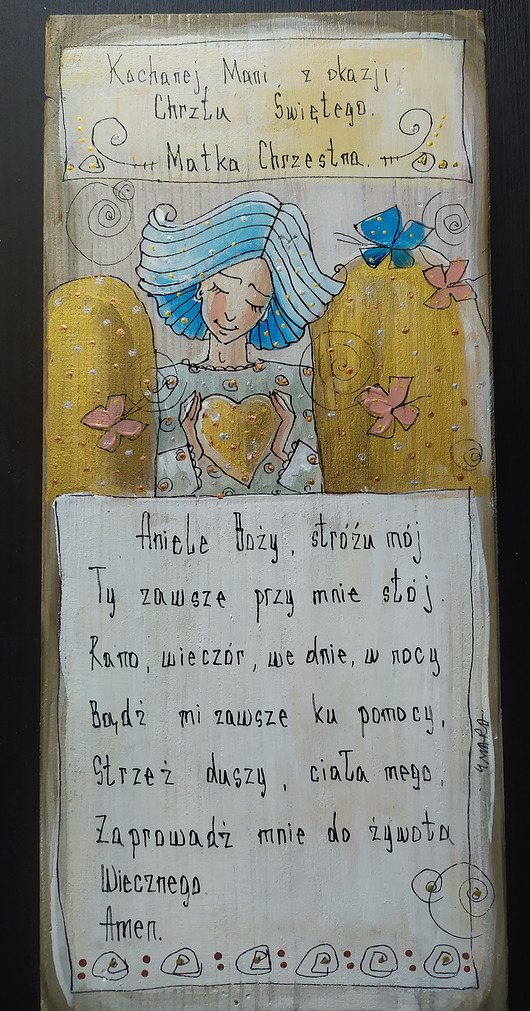 Kochanej Mani z okazji
Chrztu Świętego.
Matka Chrzestna.
Aniele Boży, stróżu mój
Ty zawsze przy mnie stój.
Rano, wieczór, we dnie, w nocy
Bądź mi zawsze ku pomocy,
Strzeż duszy, ciała mego,
Zaprowadź mnie do żywota
Wiecznego.
Amen.